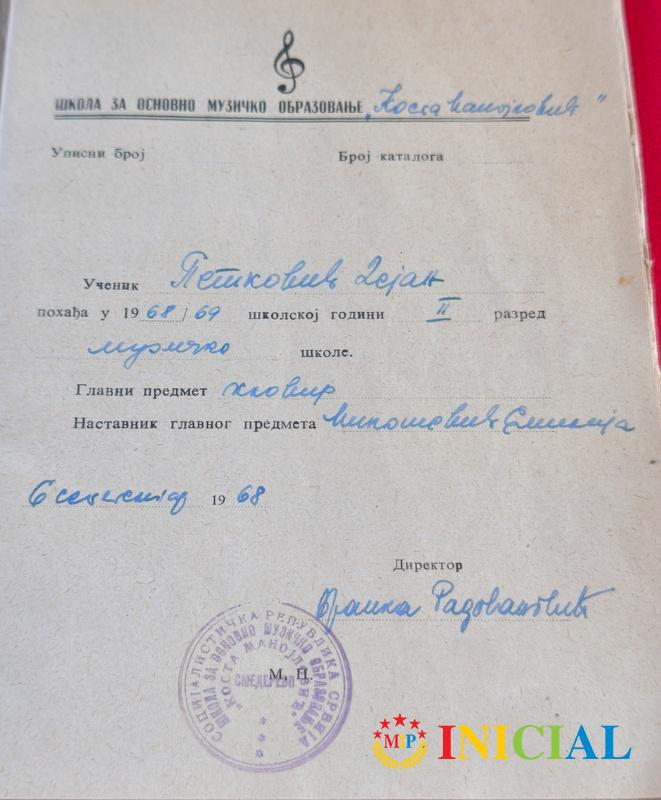 ШКОЛА ЗА ОСНОВНО МУЗИЧКО ОБРАЗОВАЊЕ „Коста Манојловић"
Уписни број Број каталога
Ученик Петковић Дејан
похађа у 1968/69 школској години II разред
музичке школе.
Главни предмет клавир
Наставник главног предмета Милошевић Емилија
6 септембар 1968
Директор
Бранка Радовановић
М. П.
СОЦИЈАЛИСТИЧКА РЕПУБЛИКА СРБИЈА
ШКОЛА ЗА ОСНОВНО МУЗИЧКО ОБРАЗОВАЊЕ
„КОСТА МАНОЈЛОВИЋ"
СМЕДЕРЕВО
MIP INICIAL